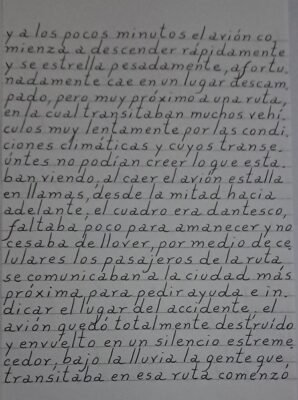 y a los pocos minutos el avión co
mienza a descender rápidamente
y se estrella pesadamente, afortu.
nadamente cae en un lugar descam
pado, pero muy próximo a una ruta,
en la cual transitaban muchos vehí.
culos muy lentamente por las condi.
ciones climáticas y cuyos transe.
úntes no podían creer lo que esta.
ban viendo, al caer el avión estalla
en llamas, desde la mitad hacia
adelante, el cuadro era dantesco,
faltaba poco para amanecer y no
cesaba de llover, por medio de ce
lulares los pasajeros de la ruta
se comunicaban a la ciudad más
próxima para pedir ayuda e in.
dicar el lugar del accidente, el
avión quedó totalmente destruído
y envuelto en un silencio estreme.
cedor, bajo la lluvia la gente que
transitaba en esa ruta comenzó